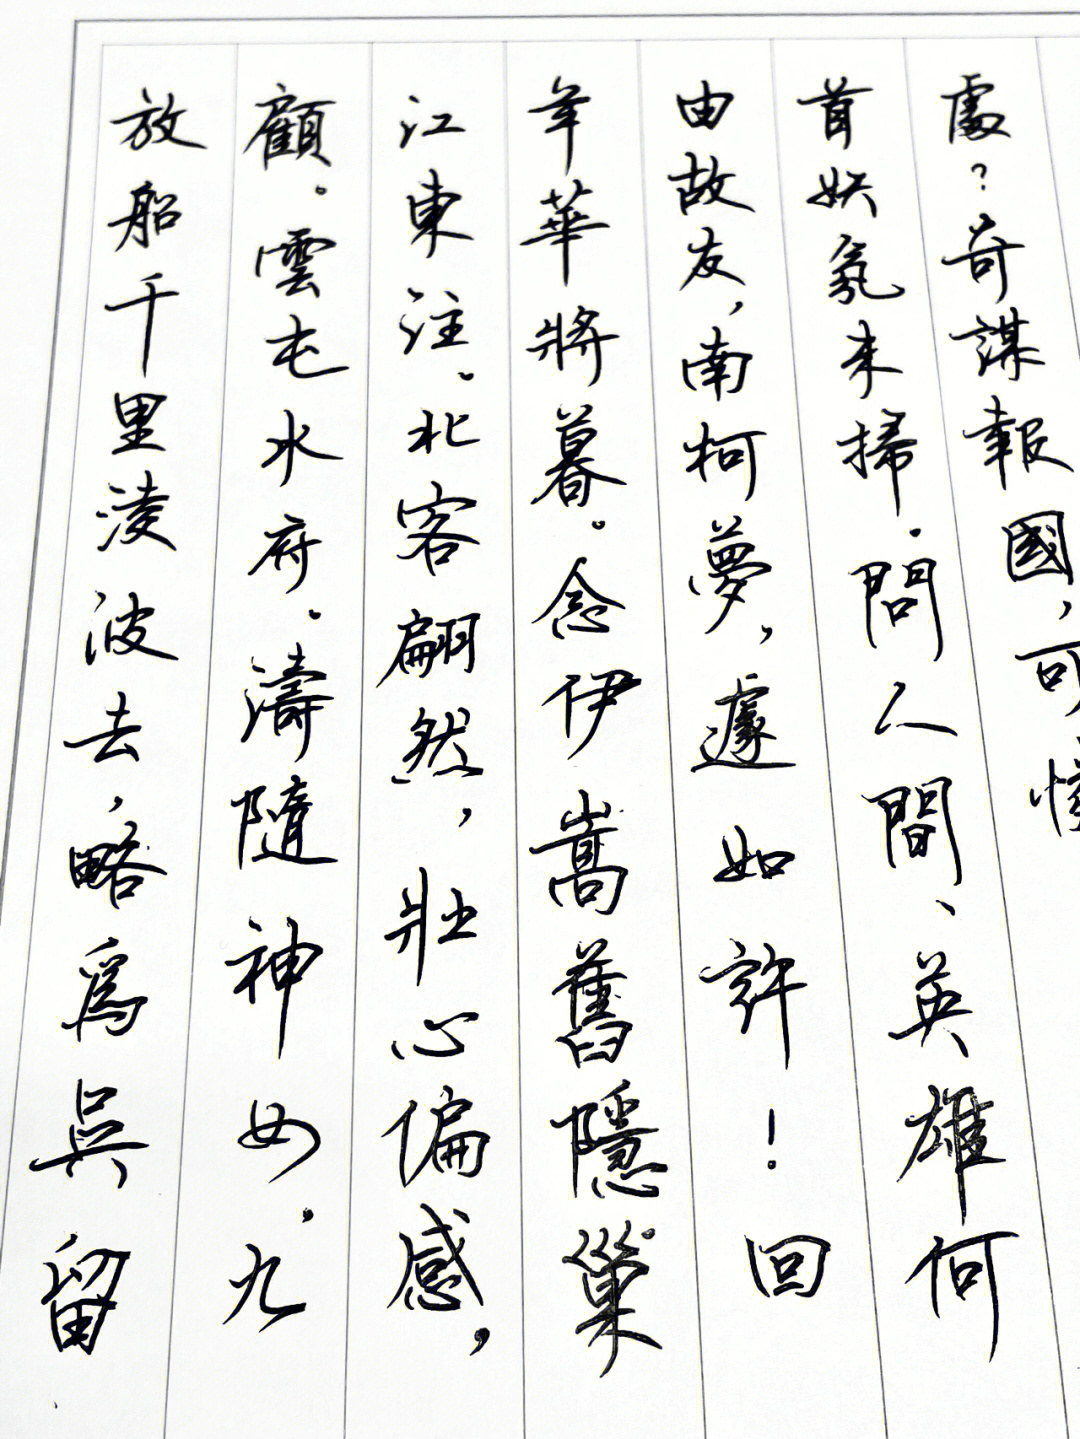 放船千里淩波去，略爲吳留
顧。雲屯水府。濤隨神女，九
江東注。北客翩然，壯心偏感，
年華將暮。念伊嵩舊隱巢
由故友，南柯夢，遽如許！回
首妖氛未掃。問人間、英雄何
處？奇謀報國，可憐